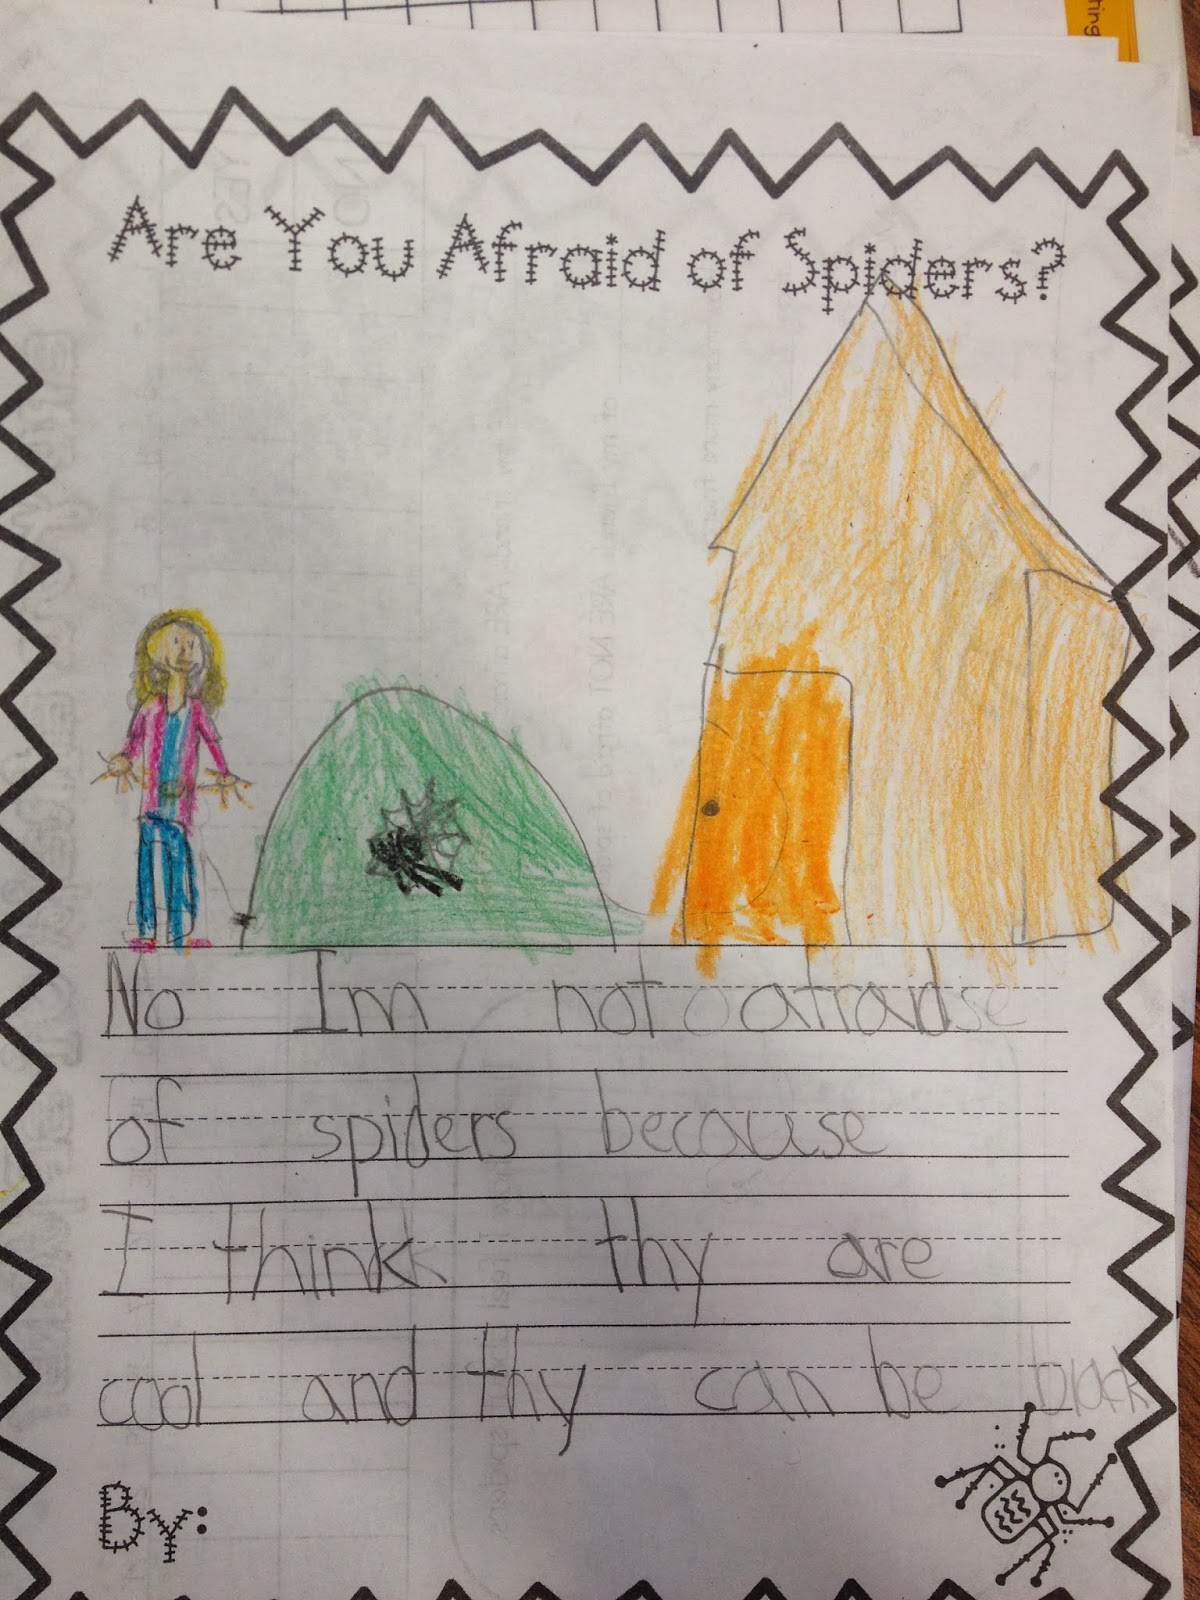 Are You Afraid of Spiders?
No Im not afraid
of spiders because
I think thy are
cool and thy can be black
By: